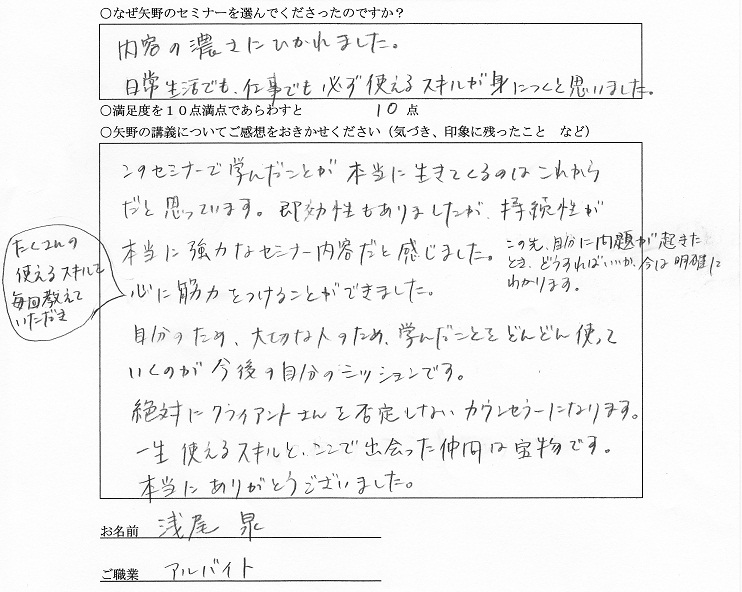 ○なぜ矢野のセミナーを選んでくださったのですか？
内容の濃さにひかれました。
日常生活でも、仕事でも必ず使えるスキルが身につくと思いました。
○満足度を１０点満点であらわすと　　１０ 点
○矢野の講義についてご感想をおきかせください（気づき、印象に残ったこと　など）
このセミナーで学んだことが本当に生きてくるのはこれから
だと思っています。即効性もありましたが、持続性が
本当に強力なセミナー内容だと感じました。
この先、自分に問題が起きた
とき、どうすればいいか、今は明確に
わかります。
たくさんの
使えるスキルを
毎回教えて
いただき
心に筋力をつけることができました。
自分のため、大切な人のため、学んだことをどんどん使って
いくのが今後の自分のミッションです。
絶対にクライアントさんを否定しないカウンセラーになります。
一生使えるスキルと、ここで出会った仲間は宝物です。
本当にありがとうございました。
お名前　浅尾 泉
ご職業　アルバイト